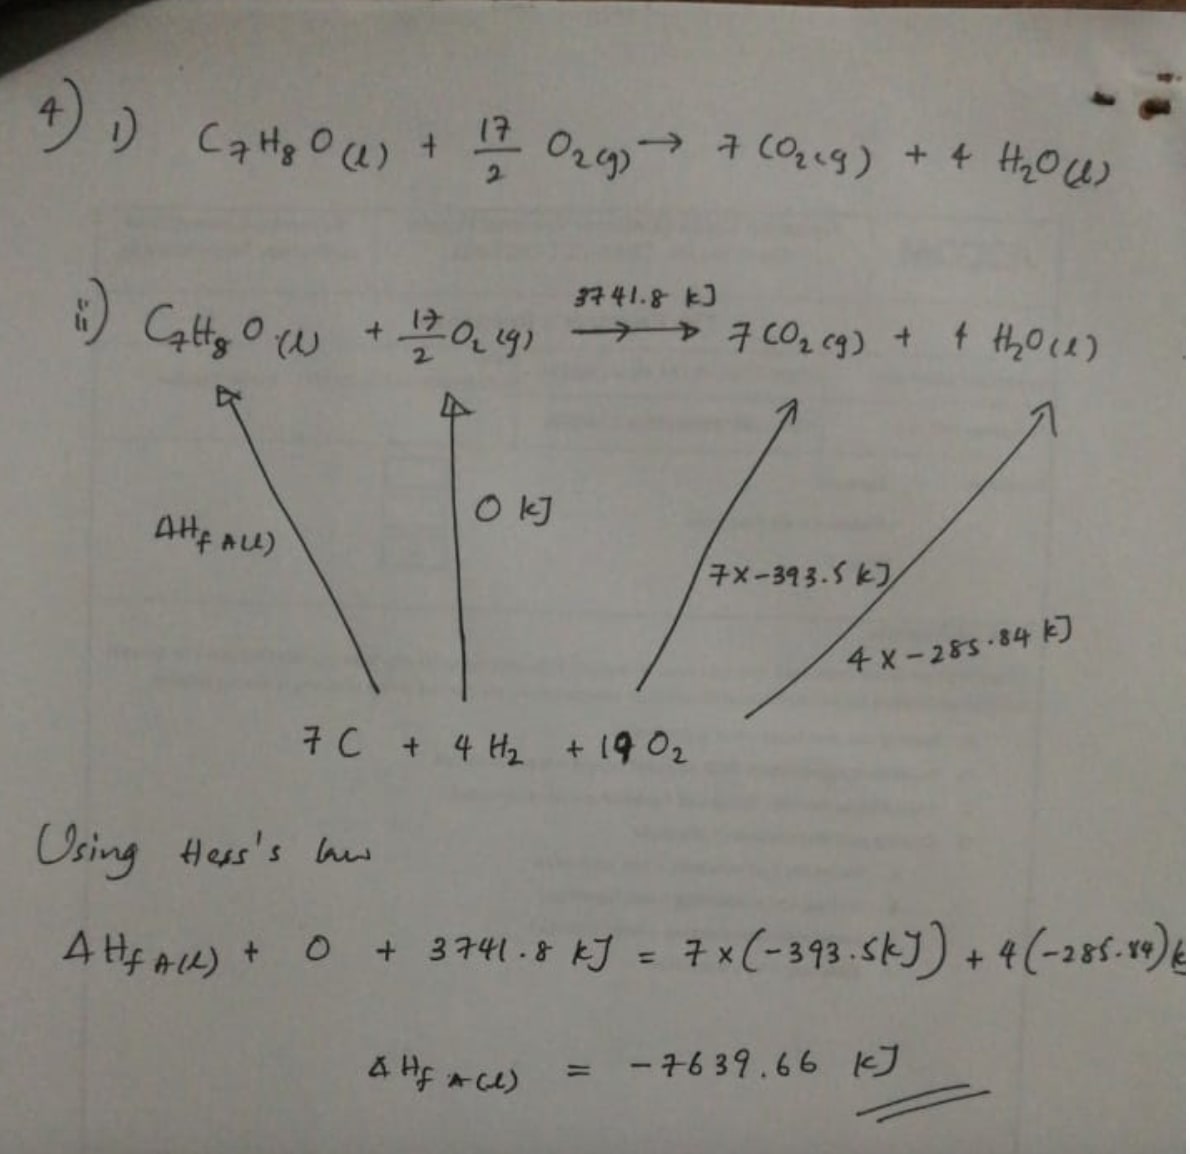 4) i) C₇H₈O(l) + 17/2 O₂(g) → 7 CO₂(g) + 4 H₂O(l)
3741.8 kJ
ii) C₇H₈O(l) + 17/2 O₂(g) → 7 CO₂(g) + 4 H₂O(l)
ΔHf A(l)
0 kJ
7x-393.5 kJ
4 x -285.84 kJ
7 C + 4 H₂ + 19 O₂
Using Hess's law
ΔHf A(l) + 0 + 3741.8 kJ = 7 x (-393.5kJ) + 4(-285.84)k
ΔHf A(l) = -7639.66 kJ